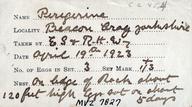 NAME Peregrine
LOCALITY Beacon Crag Yorkshire
TAKEN BY E.S & R.H.W.
DATE April 19th 1923
No. OF EGGS IN SET 3 SET MARK 1/3
NEST On edge of Rock about
120 feet high Eggs out on about
5 days
MVZ 7827